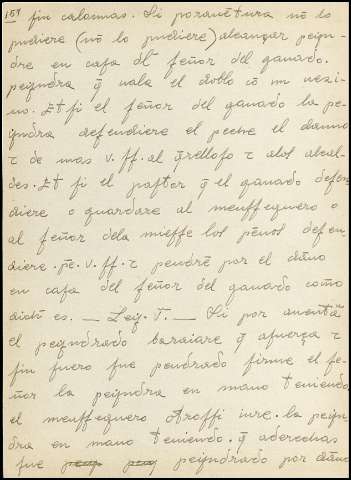 151 ſin calonnas. Si porauētura nō lo
pudiere (nō lo pudiere) alcançar peyn-
dre en caſa dl ſeñor del ganado.
peyndra q̄ uala el doblo cō un uezi-
no. Et ſi el ſeñor del ganado la pe-
yndra defendiere el peche el danno
τ de mas v. ſſ. al q̄relloſo τ alos alcal-
des. Et ſi el paſtor q̄ el ganado defen
diere o guardare al meſſeguero o
al ſeñor dela mieſſe los pēnos defen-
diere. pē. v. ſſ. τ pendrē por el dāno
en caſa del ſeñor del ganado como
dicħ es. — Ley. I. — Si por auentā
el peyndrado baraiare q̄ afuerça τ
ſin fuero fue pendrado firme el ſe-
ñor la peyndra en mano teniendo
el meſſeguero otroſſi iure. la peyn-
dra en mano teniendo. q̄ aderechas
fue peyndrado por dāno